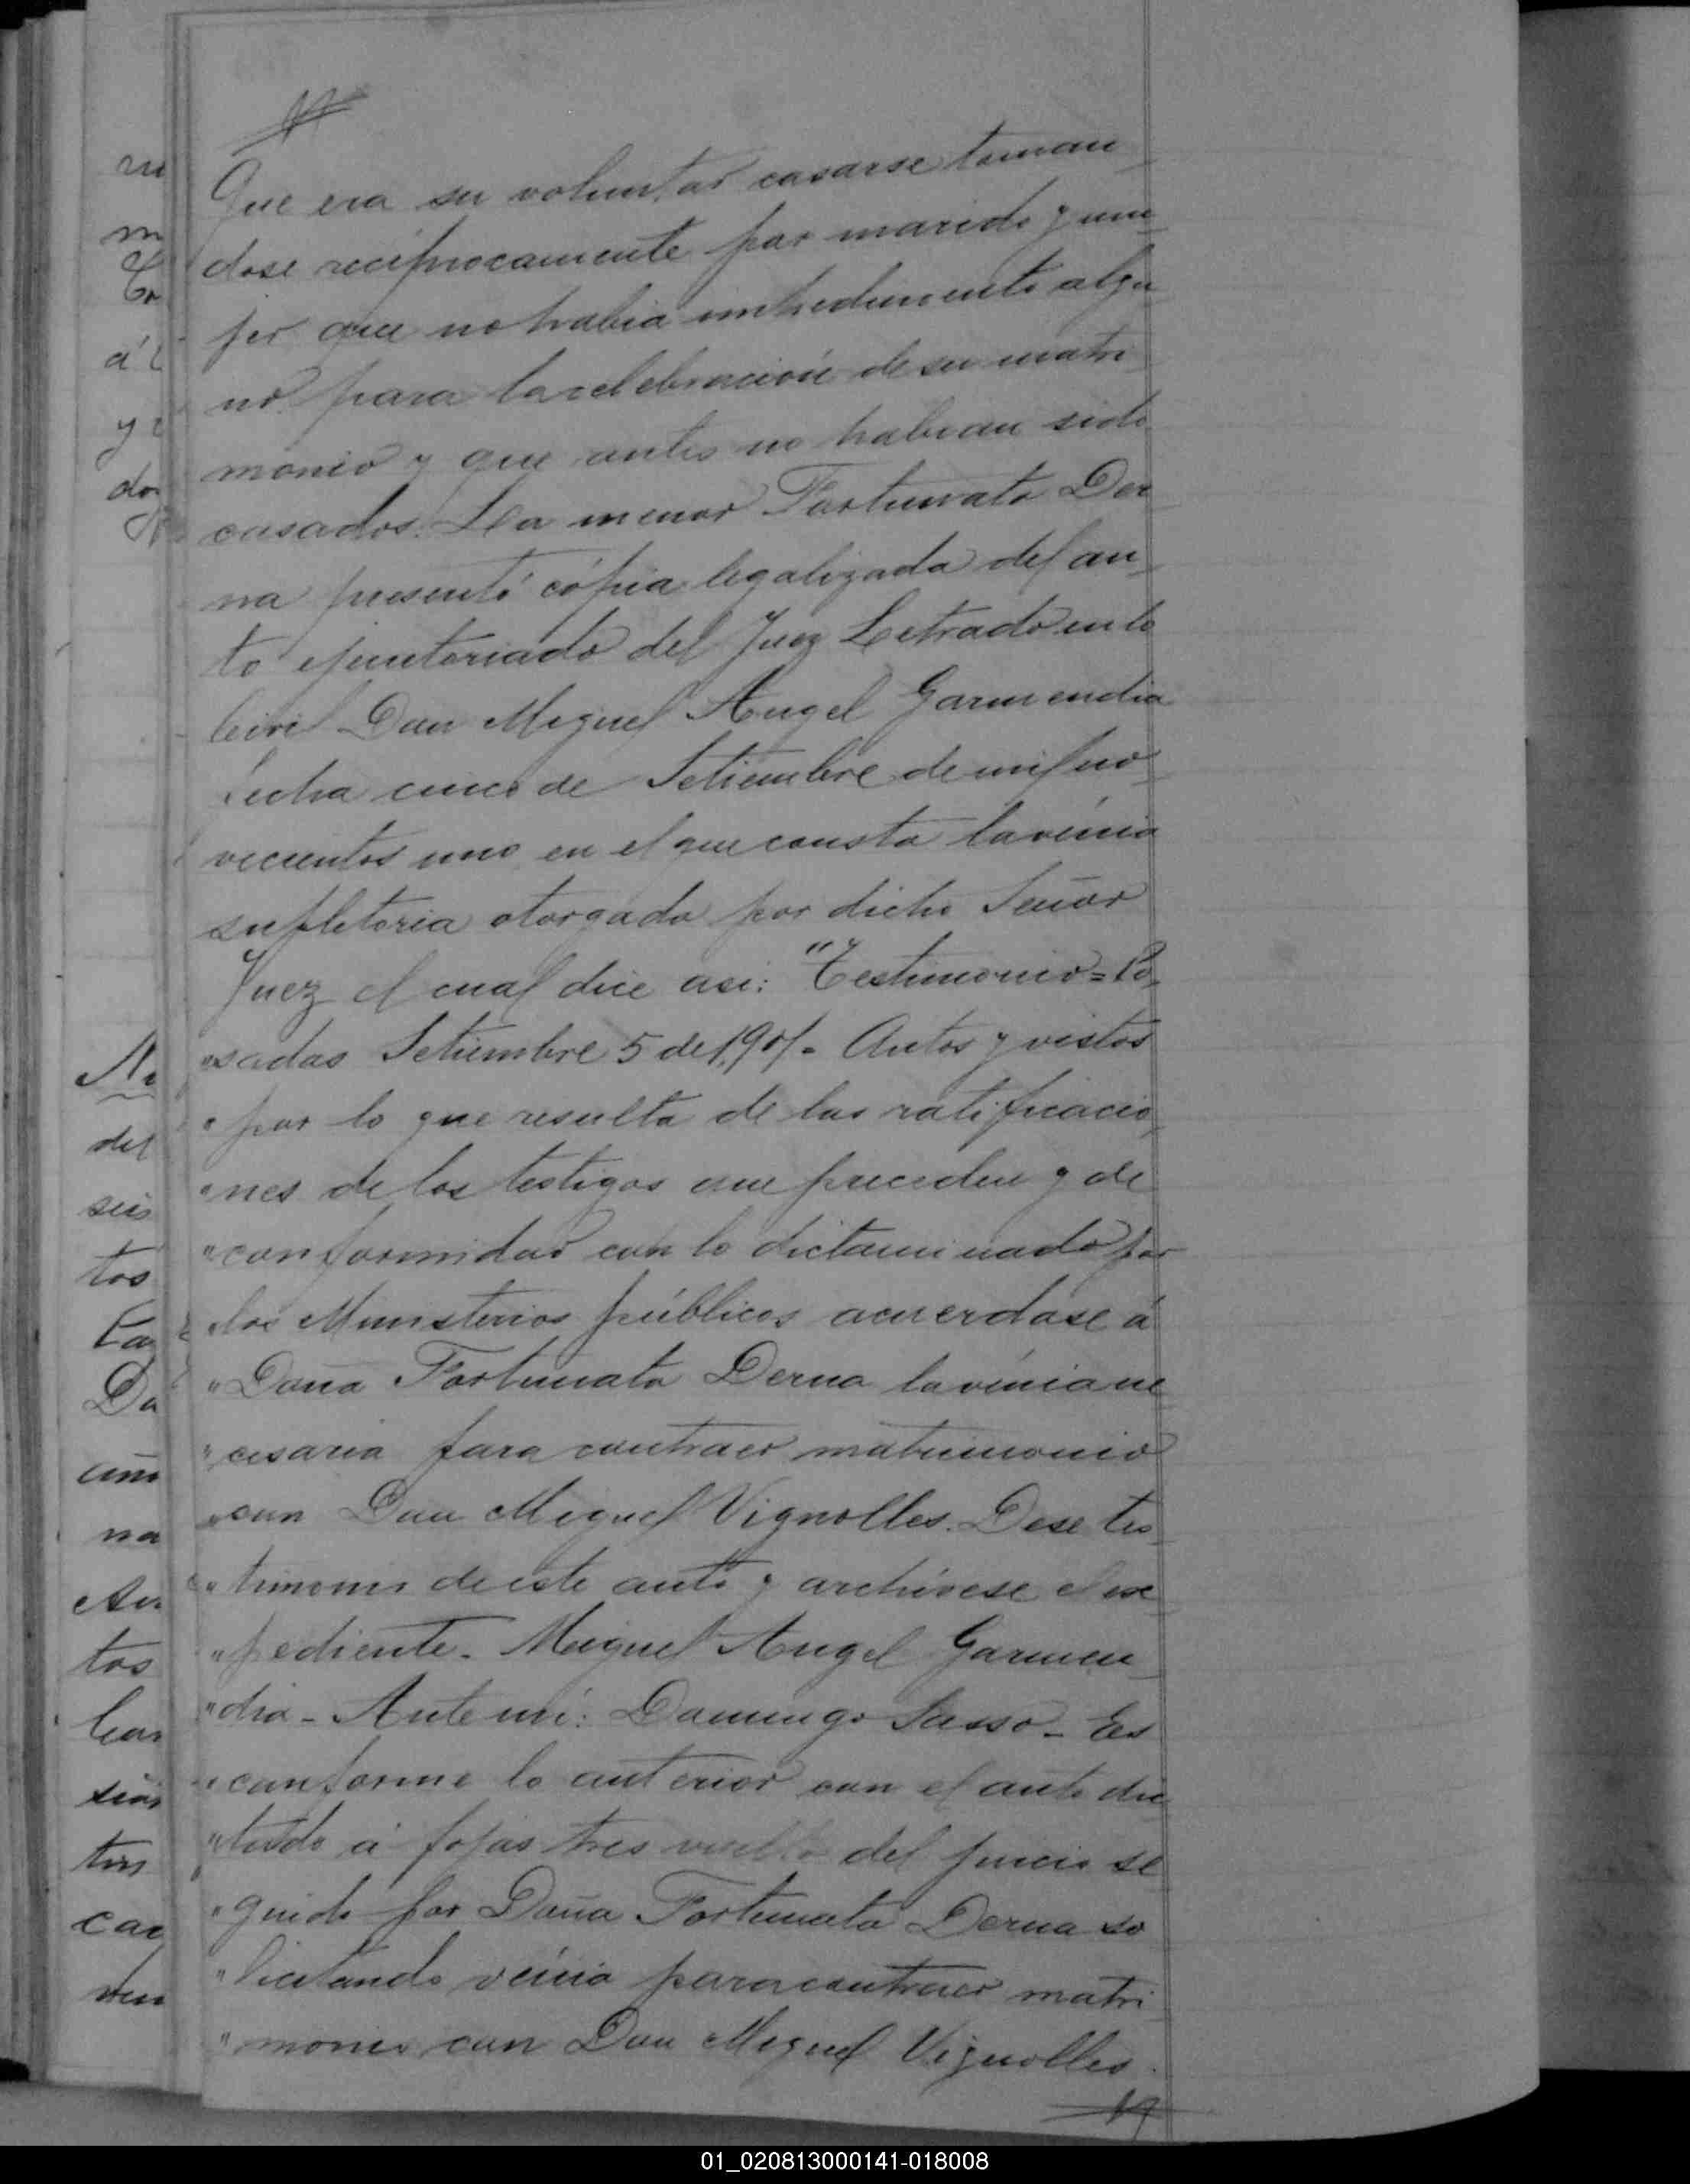 Que era su voluntad casarse toman
dose recíprocamente por marido y mu
jer que no habia impedimento algu
no para la celebración de su matri
monio y que antes no habian sido
casados. La menor Fortunata Der
na presentó cópia legalizada del au
to ejecutoriado del Juez Letrado en lo
Civil Don Miguel Angel Garmendia
fecha cinco de Setiembre de mil no
vecientos uno, en el que consta la vénia
supletoria otorgada por dicho Señor
Juez el cual dice asi: "Testimonio=Po
"sadas Setiembre 5 de 1.901- Autos y vistos
"por lo que resulta de las ratificacio
"nes de los testigos que preceden y de
"conformidad con lo dictaminado por
"los Ministerios públicos acuerdase á
"Doña Fortunata Derna la vénia ne
"cesaria para contraer matrimonio
"con Don Miguel Vignolles. Dese tes
"timonio de este auto y archívese el ex
"pediente. Miguel Angel Garmen
"dia - Ante mí: Domingo Sasso - Es
"conforme lo anterior con el auto dic
"tado á fojas tres vuelta del juicio se
"guido por Doña Fortunata Derna so
"licitando vénia para contraer matri
"monio con Don Miguel Vignolles.
ru
m
á l
y
do
del
seis
tos
Ca
Do
na
tos
tin
car
01_020813000141-018008